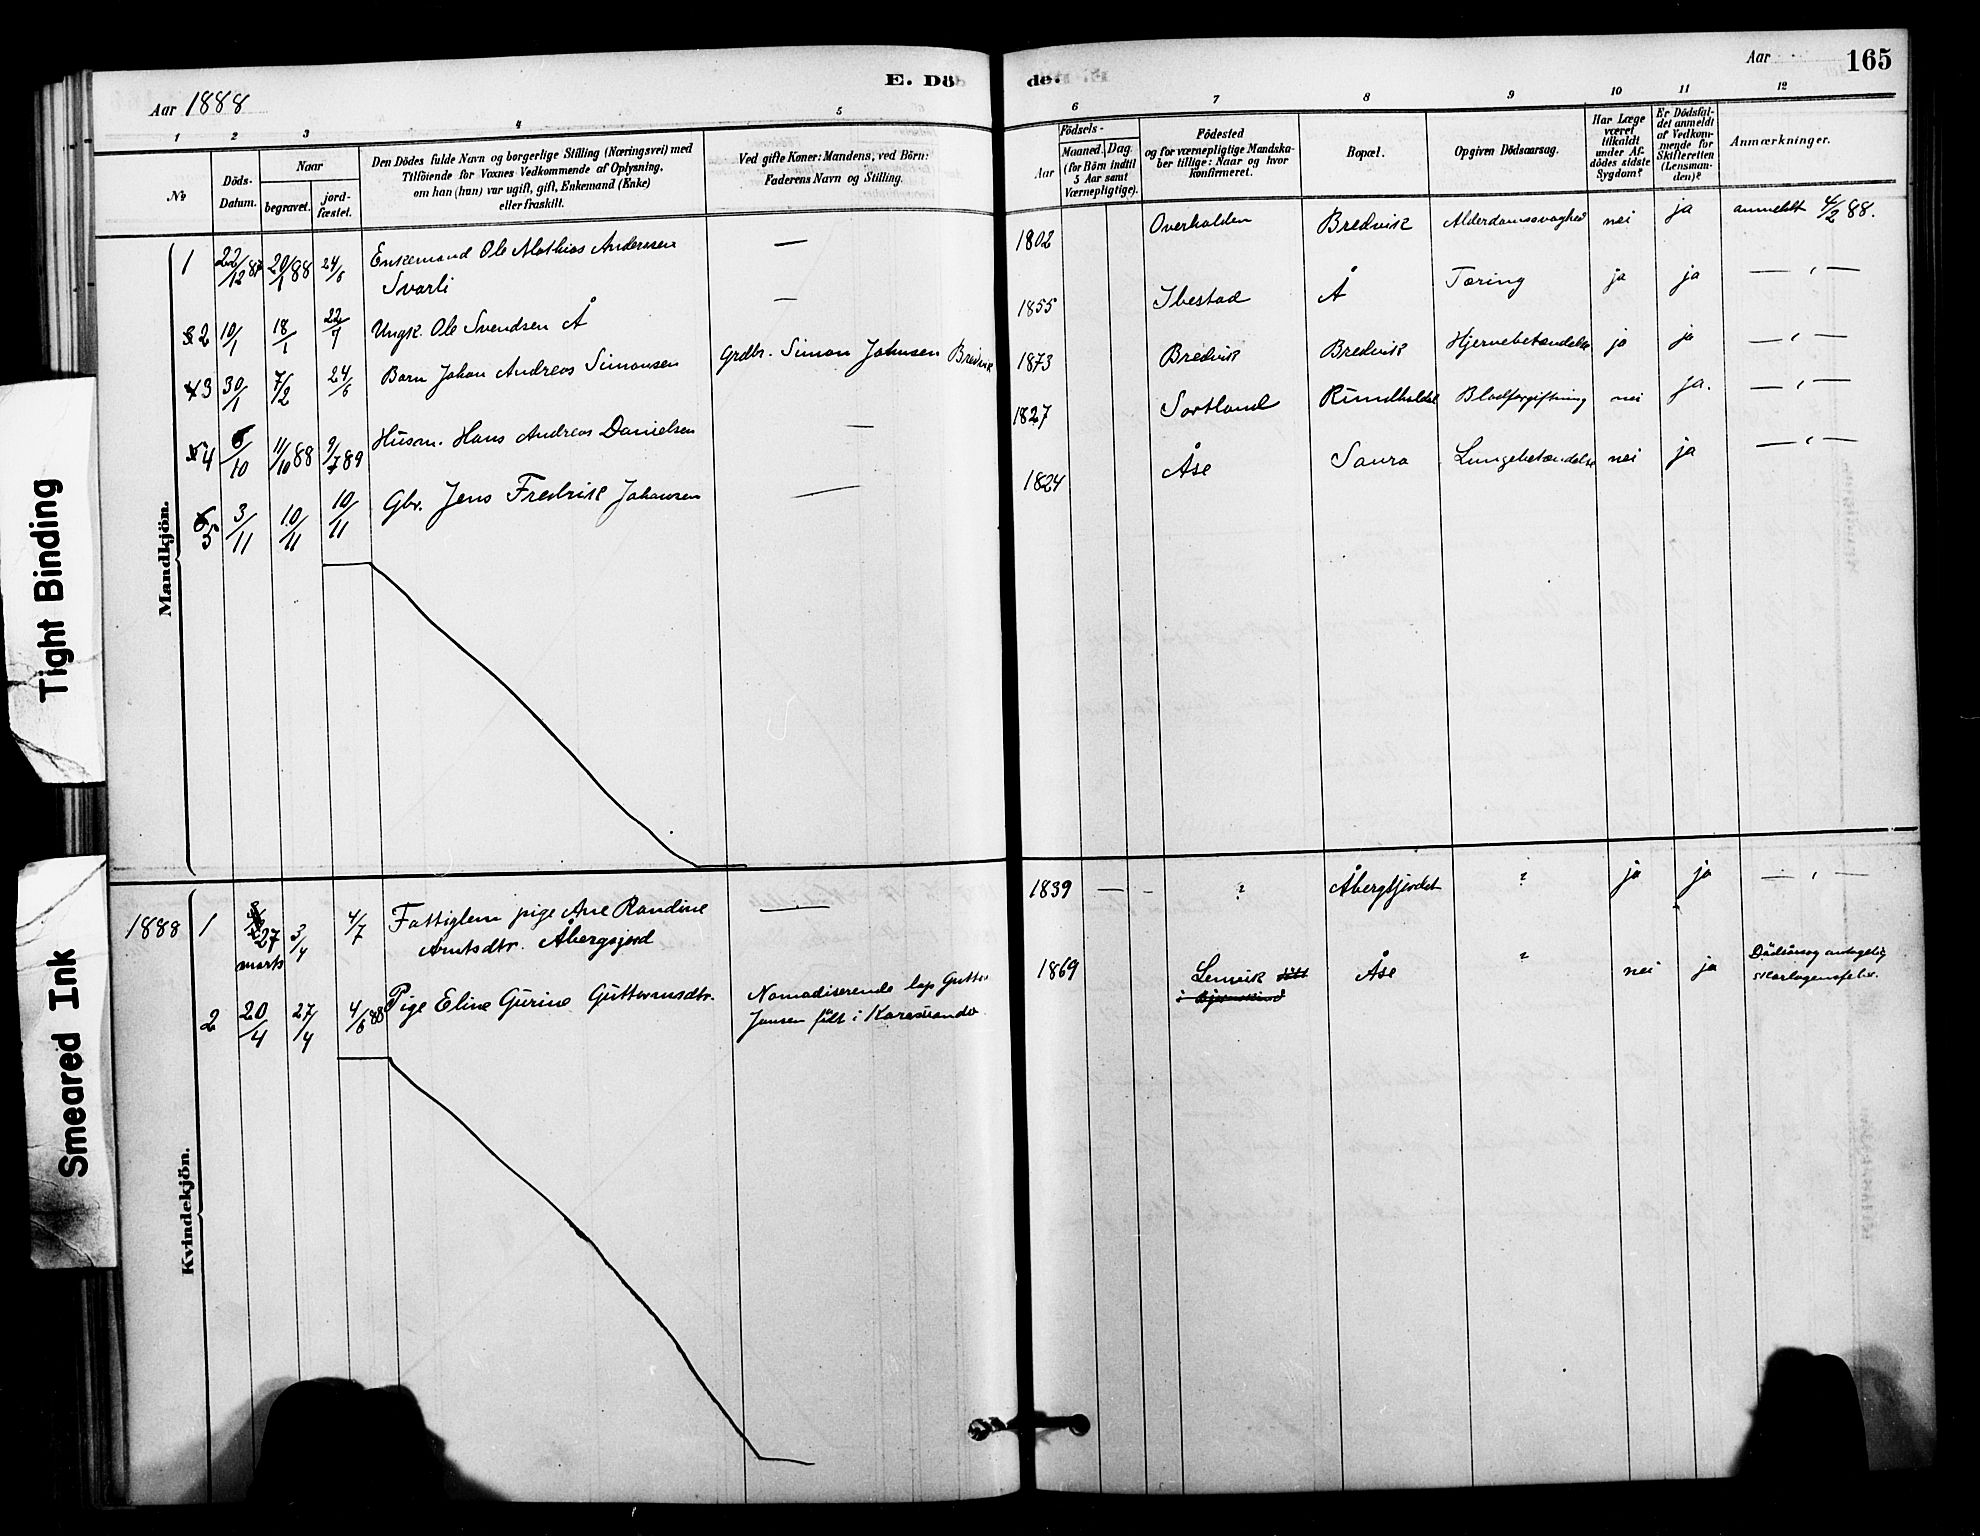 Tight Binding
Smeared Ink
E. Dö
de.
Aar 165
Aar 1888
1 2 3 4 5
6 7 8 9 10 11 12
No
Döds-
Datum.
Naar
begravet.
jord-
fæstet.
Den Dödes fulde Navn og borgerlige Stilling (Næringsvei) med
Tilföiende for Voxnes Vedkommende af Oplysning,
om han (hun) var ugift, gift, Enkemand (Enke)
eller fraskilt.
Ved gifte Koner: Mandens, ved Börn:
Faderens Navn og Stilling.
Födsels-
Aar
Maaned. Dag.
(for Börn indtil
5 Aar samt
Værnepligtige).
Födested
og for værnepligtige Mandska-
ber tillige: Naar og hvor
konfirmeret.
Bopæl.
Opgiven Dödsaarsag.
Har Læge
været
tilkaldt
under Af-
dödes sidste
Sygdom?
Er Dödsfal-
det anmeldt
af Vedkom-
mende for
Skifteretten
(Lensman-
den)?
Anmærkninger.
Mandkjön.
1 22/12 87 20/1 88 24/6 Enkemand Ole Mathias Andersen — 1802 Overhalden Bredvik Alderdomssvaghed nei ja anmeldt 4/2 88.
Svarli
2 10/1 18/1 22/7 Ungk. Ole Svendsen Å — 1855 Ibestad Å Tæring ja ja — " —
3 30/1 7/2 24/6 Barn Johan Andreas Simonsen Grdbr. Simon Johnsen Bredvik 1873 Bredvik Bredvik Hjernebetændelse ja ja — " —
4 6/10 11/10 88 9/7 89 Husm. Hans Andreas Danielsen — 1827 Sortland Rundholdet Blodforgiftning nei ja. — " —
5 3/11 10/11 10/11 Gbr. Jens Fredrik Johansen — 1824 Åse Saura Lungebetændelse nei ja — " —
Kvindekjön.
1888 1 27 3/4 4/7 Fattiglem pige Ane Randine — 1839 — - ? Åbergsjordet ? ja ja — " —
marts Arntsdtr. Åbergsjord
2 20/4 27/4 4/6 88 Pige Eline Gurine Guttormsdtr. Nomadiserende lap Guttor 1869 Lenvik født Åse ? nei ja Dødsårsag antagelig
Jonsen født i Karesuando i Bjørnskind skarlagensfeber.